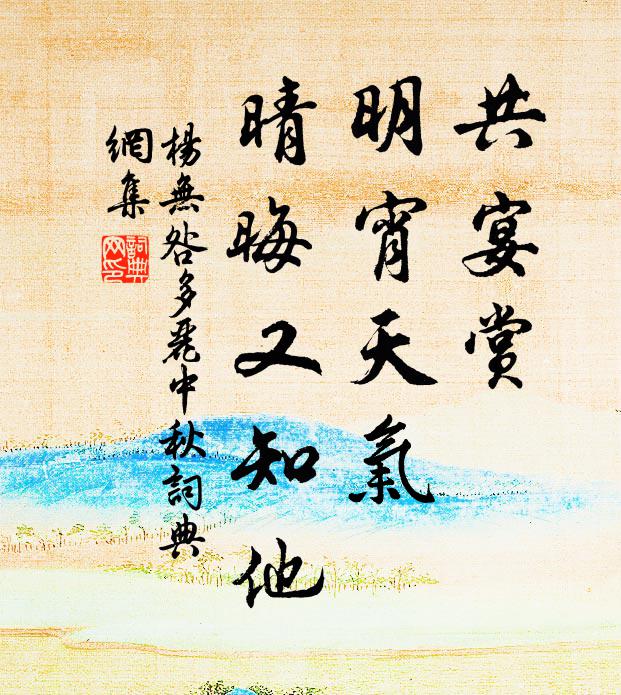 共宴賞
明宵天氣
晴晦又知他
楊無咎多麗中秋詞典
網集
詞典
网印